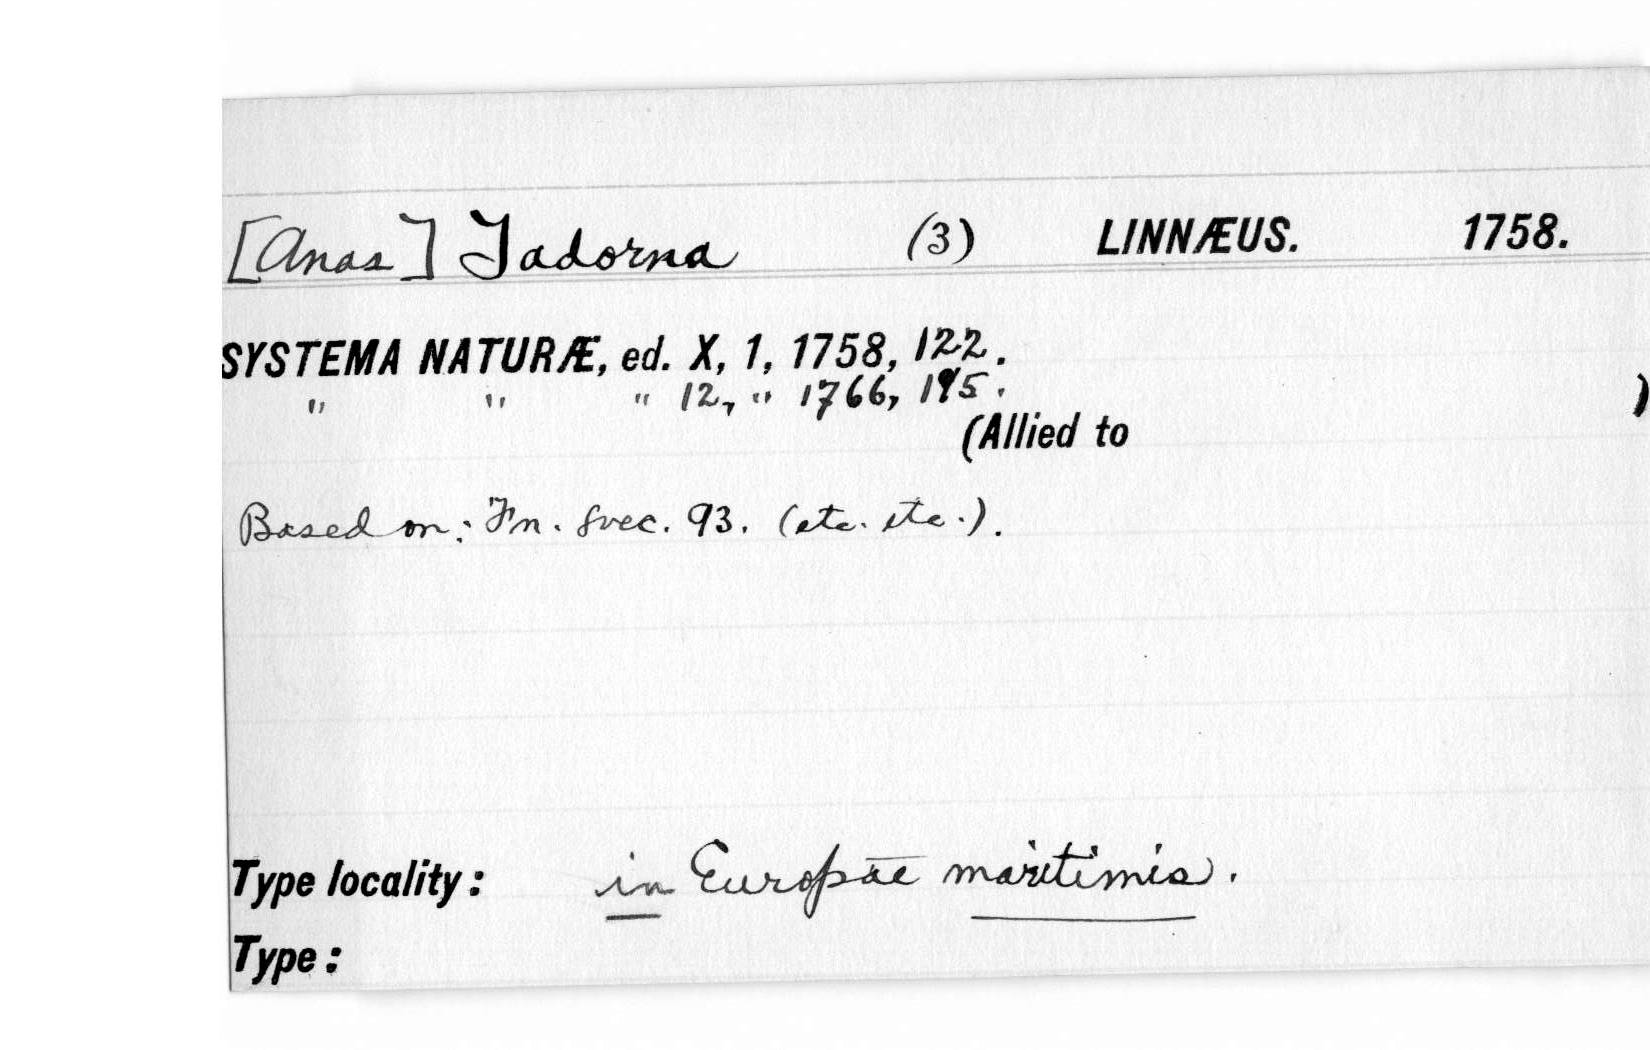 [Anas] Tadorna (3) LINNÆUS. 1758.
SYSTEMA NATURÆ, ed. X, 1, 1758, 122.
" " " 12, " 1766, 195.
(Allied to )
Based on: Fn. svec. 93. (etc. etc.).
Type locality: in Europae maritimis.
Type: